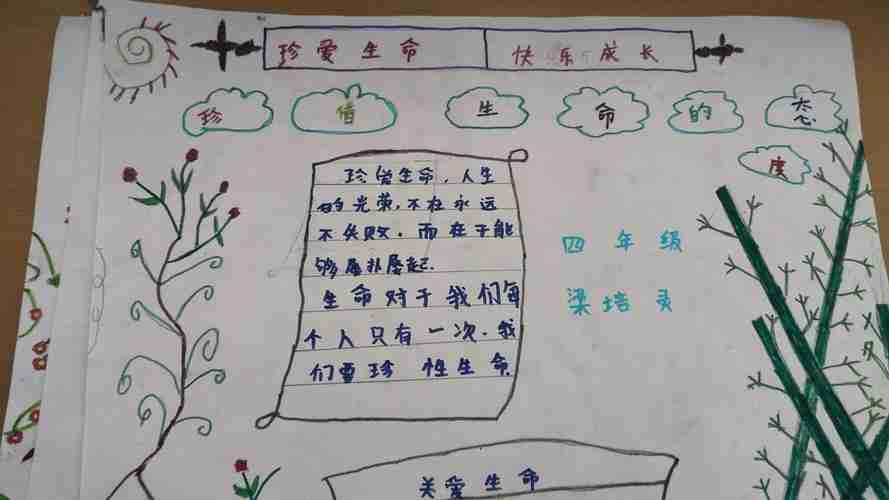 珍爱生命 快乐成长
珍惜生命的态
度
珍爱生命，人生
的光荣，不在永远
不失败，而在于能
够屡扑屡起.
生命对于我们每
个人只有一次.我
们要珍性生命
四年级
梁培灵
关爱生命